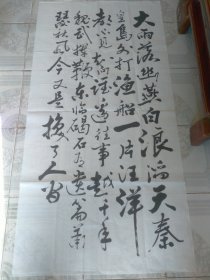 大雨落幽燕白浪滔天秦
皇島外打漁船一片汪洋
都不见知向谁边往事越千年
魏武揮鞭东临碣石有遗篇蕭
瑟秋風今又是换了人间